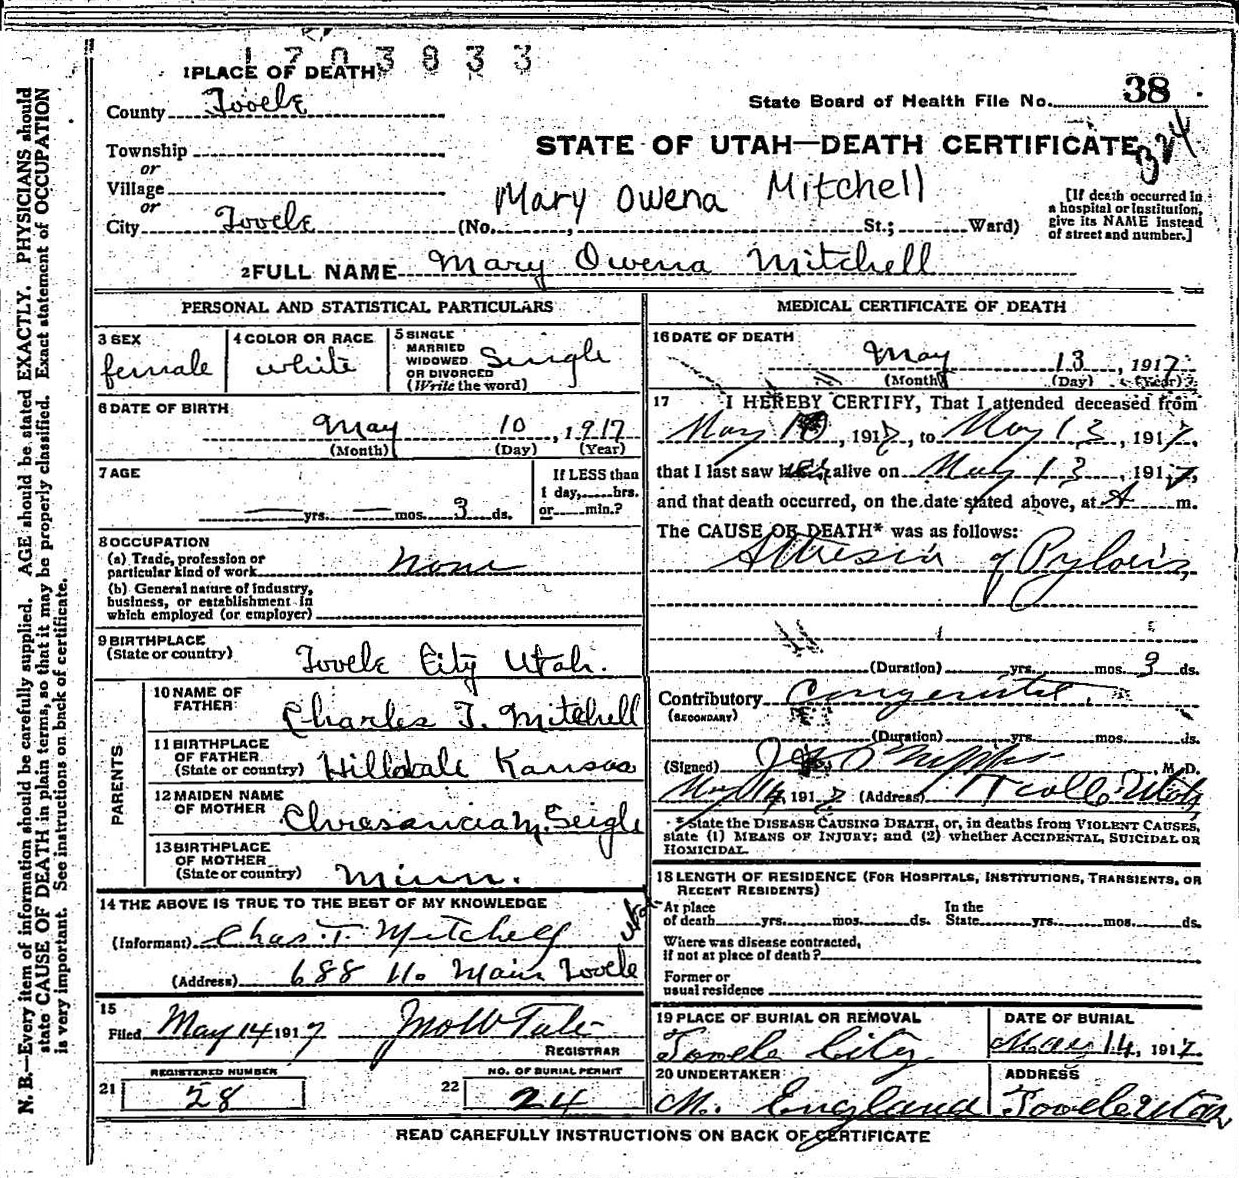 1703833
1 PLACE OF DEATH
County Tooele
State Board of Health File No. 38
Township
STATE OF UTAH—DEATH CERTIFICATE
324
or
Village
or
City Tooele
Mary Owena Mitchell
(No. , St.; Ward)
[If death occurred in
a hospital or institution,
give its NAME instead
of street and number.]
2 FULL NAME Mary Owena Mitchell
PERSONAL AND STATISTICAL PARTICULARS
3 SEX
female
4 COLOR OR RACE
white
5 SINGLE
MARRIED
WIDOWED
OR DIVORCED
(Write the word)
Single
6 DATE OF BIRTH
May 10, 1917
(Month) (Day) (Year)
7 AGE
— yrs. — mos. 3 ds.
If LESS than
1 day, hrs.
or min.?
8 OCCUPATION
(a) Trade, profession or
particular kind of work None
(b) General nature of industry,
business, or establishment in
which employed (or employer)
9 BIRTHPLACE
(State or country)
Tooele City Utah.
PARENTS
10 NAME OF
FATHER
Charles T. Mitchell
11 BIRTHPLACE
OF FATHER
(State or country) Hilldale Kansas
12 MAIDEN NAME
OF MOTHER
M. Seigle
13 BIRTHPLACE
OF MOTHER
(State or country) Minn.
14 THE ABOVE IS TRUE TO THE BEST OF MY KNOWLEDGE
(Informant) Chas. T. Mitchell
(Address) 688 No Main Tooele Utah
15
Filed May 14 1917
REGISTRAR
REGISTERED NUMBER
21 28
NO. OF BURIAL PERMIT
22 24
MEDICAL CERTIFICATE OF DEATH
16 DATE OF DEATH
May 13, 1917
(Month) (Day) (Year)
17 I HEREBY CERTIFY, That I attended deceased from
May 10, 1917, to May 13, 1917,
that I last saw her alive on May 13, 1917,
and that death occurred, on the date stated above, at A m.
The CAUSE OF DEATH* was as follows:
Atresia of Pyloris
(Duration) yrs. mos. 3 ds.
Contributory Congenital.
(SECONDARY)
(Duration) yrs. mos. ds.
(Signed) M. D.
May 14, 1917 (Address) Tooele Utah
* State the DISEASE CAUSING DEATH, or, in deaths from VIOLENT CAUSES,
state (1) MEANS OF INJURY; and (2) whether ACCIDENTAL, SUICIDAL OR
HOMICIDAL.
18 LENGTH OF RESIDENCE (FOR HOSPITALS, INSTITUTIONS, TRANSIENTS, OR
RECENT RESIDENTS)
At place
of death yrs. mos. ds.
In the
State yrs. mos. ds.
Where was disease contracted,
if not at place of death?
Former or
usual residence
19 PLACE OF BURIAL OR REMOVAL
Tooele City
DATE OF BURIAL
May 14, 1917.
20 UNDERTAKER
M. England
ADDRESS
Tooele Utah
READ CAREFULLY INSTRUCTIONS ON BACK OF CERTIFICATE
N. B.—Every item of information should be carefully supplied. AGE should be stated EXACTLY. PHYSICIANS should
state CAUSE OF DEATH in plain terms, so that it may be properly classified. Exact statement of OCCUPATION
is very important. See instructions on back of certificate.